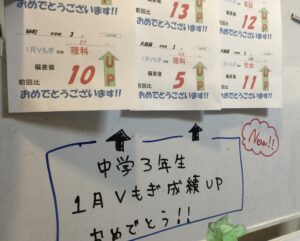 13 UP
おめでとうございます!!
12 UP
中学 3
1月Vもぎ 理科
偏差値
前回比 10 UP
おめでとうございます!!
中学 3
1月Vもぎ 理科
偏差値
前回比 5 UP
おめでとうございます!!
中学 3
1月Vもぎ 社会
偏差値
前回比 11 UP
おめでとうございます!!
New!!
中学3年生
1月Vもぎ成績UP
おめでとう!!